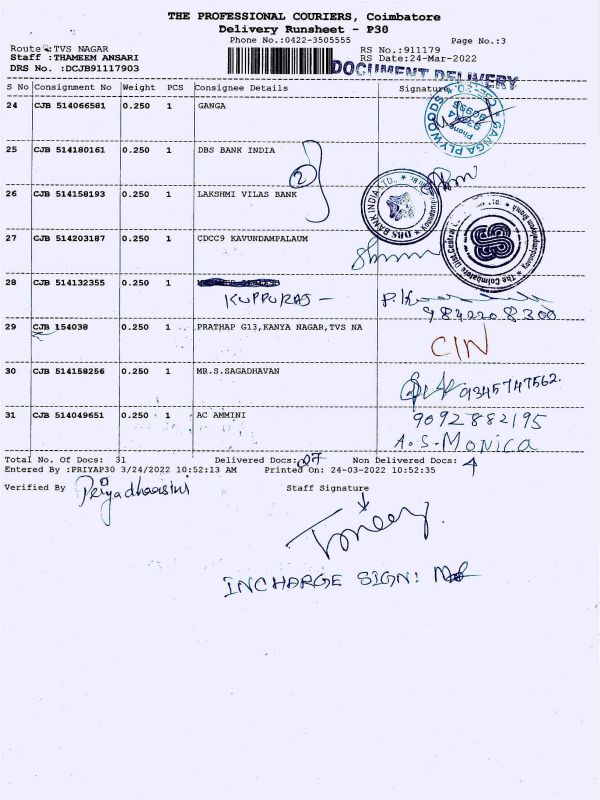 THE PROFESSIONAL COURIERS, Coimbatore
Delivery Runsheet - P30
Phone No.:0422-3505555
Page No.:3
Route :TVS NAGAR
RS No.:911179
Staff :THAMEEM ANSARI
RS Date:24-Mar-2022
DRS No. :DCJB91117903
DOCUMENT DELIVERY
S No Consignment No Weight PCS Consignee Details Signature
24 CJB 514066581 0.250 1 GANGA
GANGA PLYWOODS
Phone
25 CJB 514180161 0.250 1 DBS BANK INDIA
2
DBS BANK INDIA LTD.,
26 CJB 514158193 0.250 1 LAKSHMI VILAS BANK
The Coimbatore Dist. Central
27 CJB 514203187 0.250 1 CDCC9 KAVUNDAMPALAUM
28 CJB 514132355 0.250 1
KUPPURAJ -
9842208300
29 CJB 154038 0.250 1 PRATHAP G13,KANYA NAGAR,TVS NA
CIN
30 CJB 514158256 0.250 1 MR.S.SAGADHAVAN
9345747562.
31 CJB 514049651 0.250 1 AC AMMINI
9092882195
A.S.Monica
Total No. Of Docs: 31 Delivered Docs: 27 Non Delivered Docs: 4
Entered By :PRIYAP30 3/24/2022 10:52:13 AM Printed On: 24-03-2022 10:52:35
Verified By Priyadharshni Staff Signature
INCHARGE SIGN: